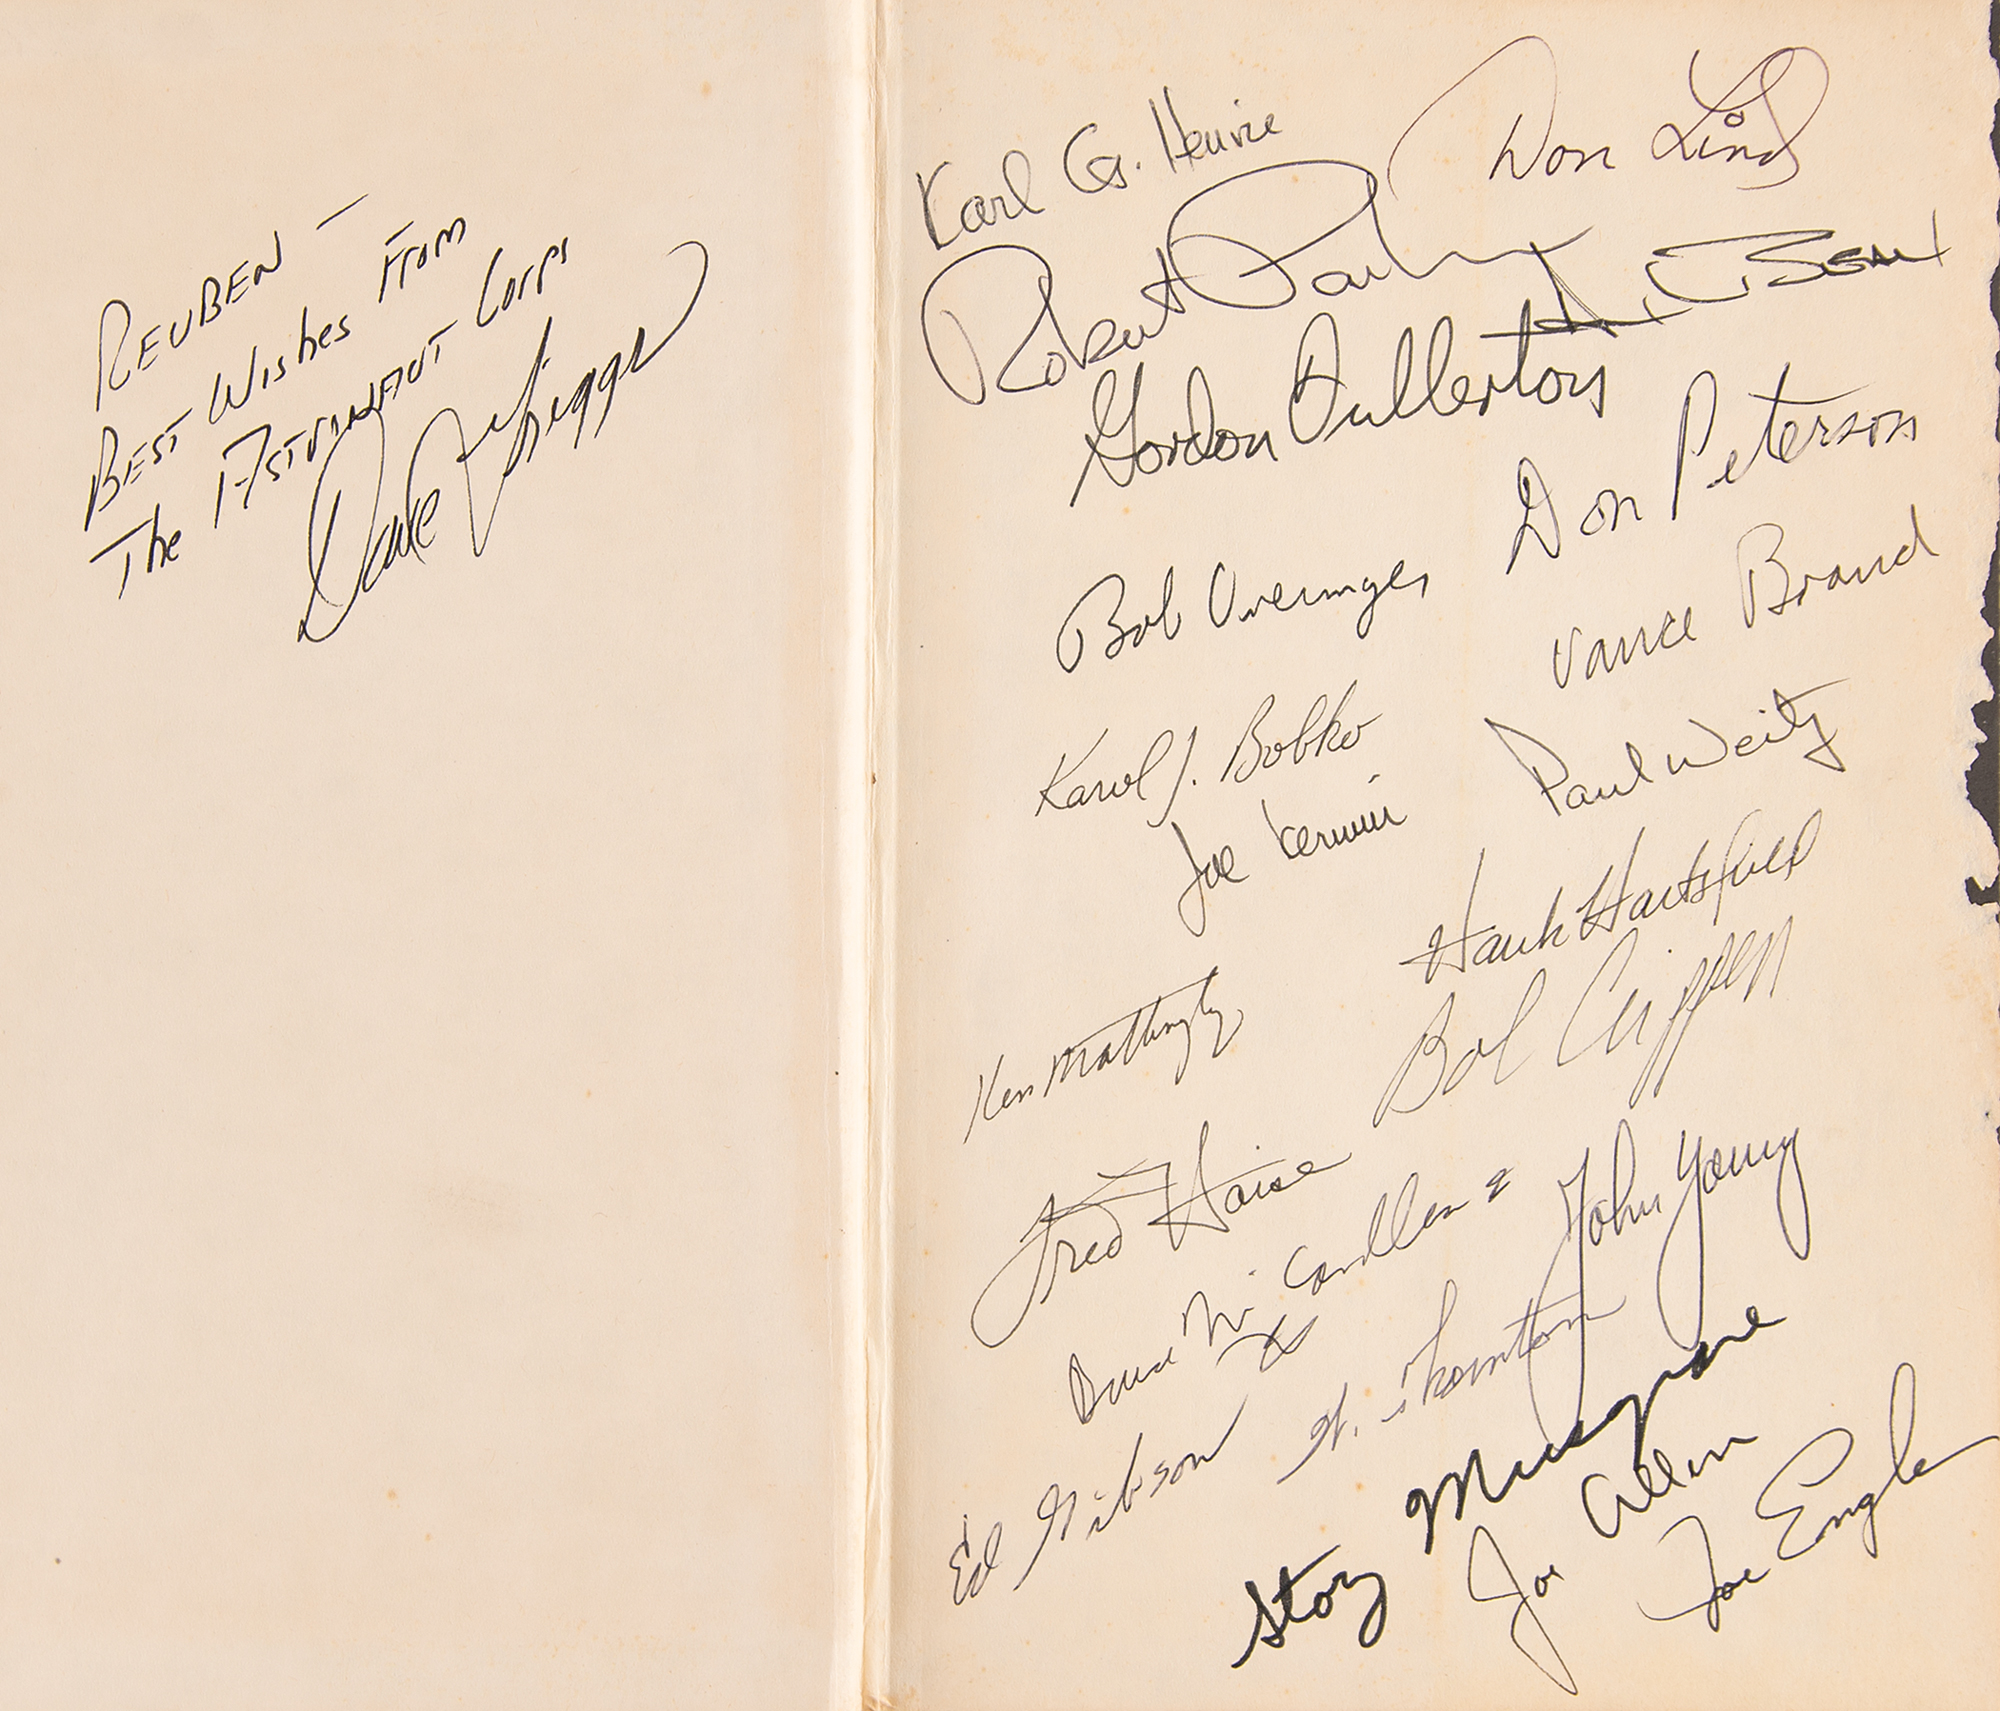 REUBEN —
BEST WISHES FROM
THE ASTRONAUT CORPS
Dave Griggs
Karl G. Henize
Don Lind
Robert Parker
Alan L Bean
Gordon Fullerton
Don Peterson
Bob Overmyer
Vance Brand
Karol J. Bobko
Paul Weitz
Joe Kerwin
Hank Hartsfield
Ken Mattingly
Bob Crippen
Fred Haise
John Young
Bruce McCandless
Ed Gibson
W. Thornton
Story Musgrave
Joe Allen
Joe Engle